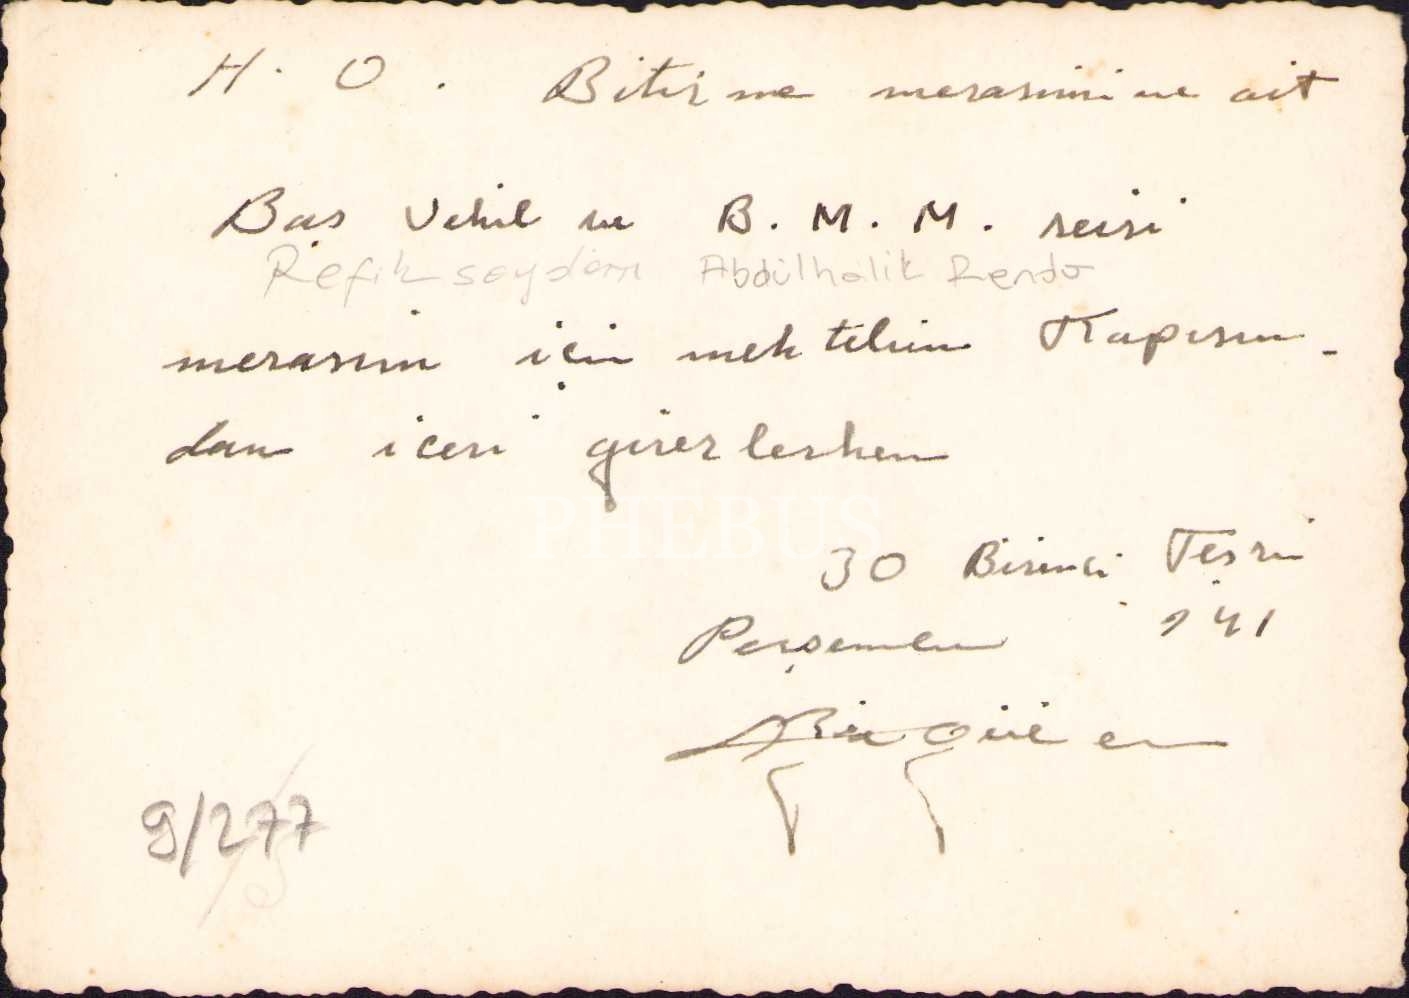 H. O. Bitirme merasimine ait
Baş Vekil ve B. M. M. reisi
Refik saydam Abdülhalik Renda
merasim için mektebin Kapısın-
dan içeri girerlerken
PHEBUS
30 Birinci Teşrin
Perşembe 941
9/277